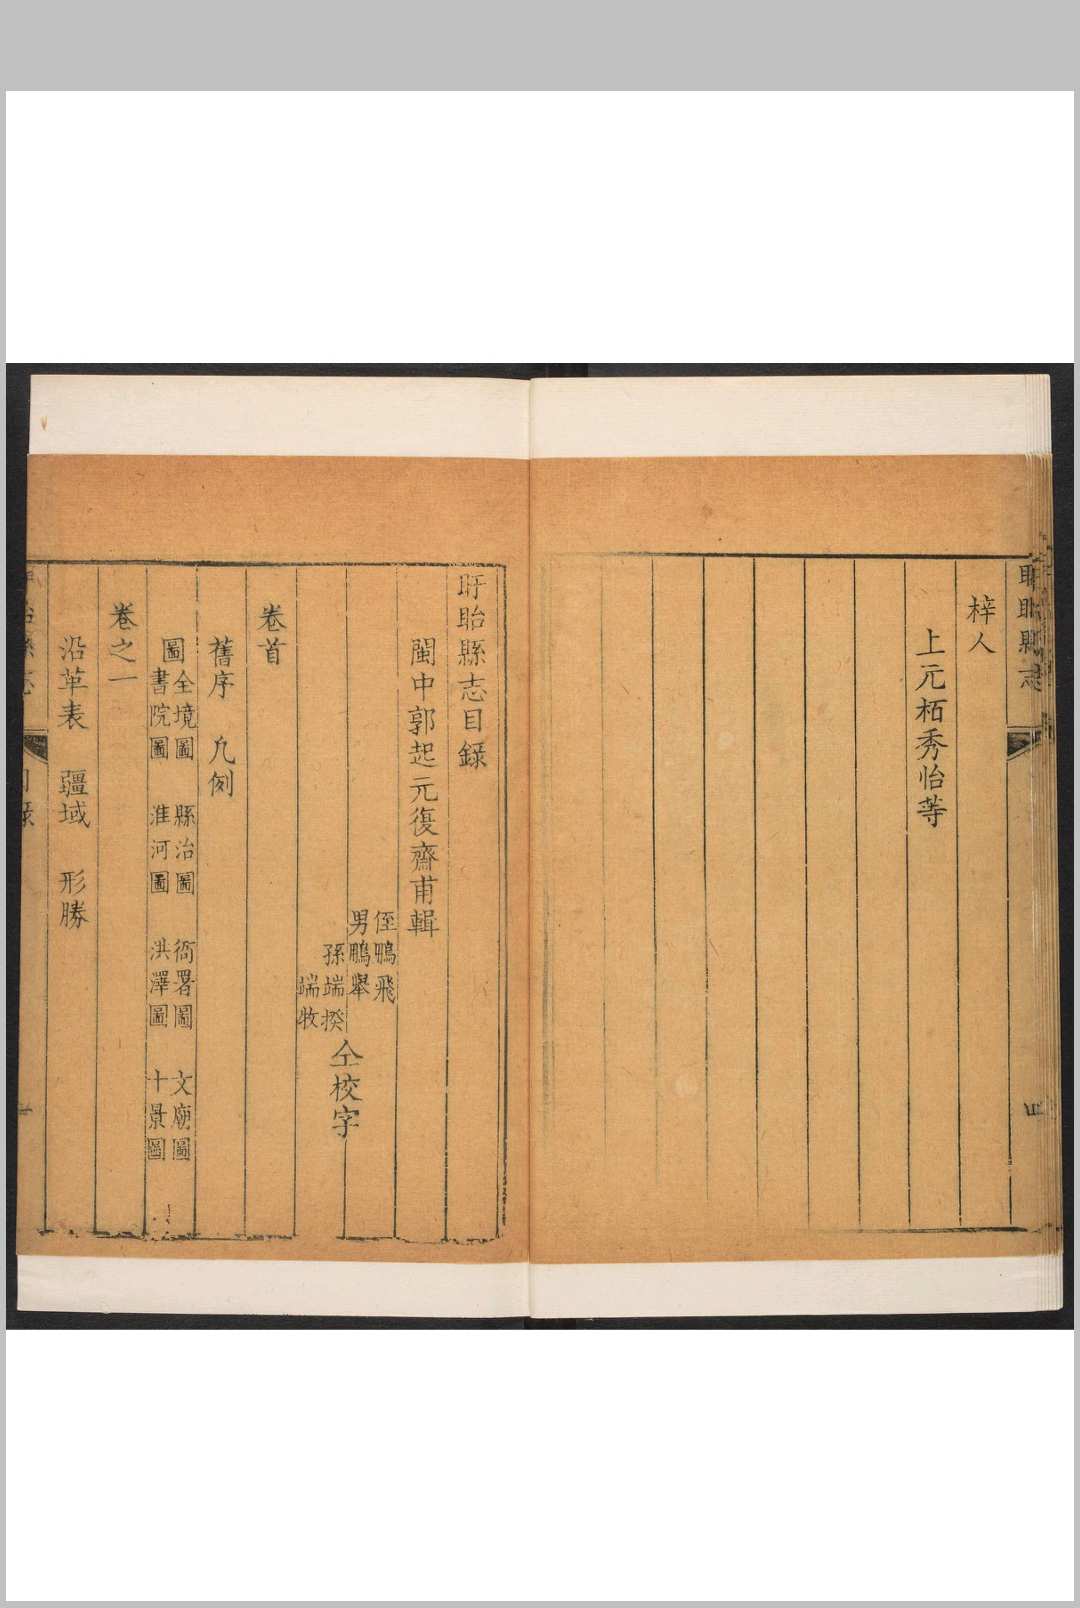 盱眙縣志
四
梓人
上元栢秀怡等
盱眙縣志目錄
閩中郭起元復齋甫輯
侄鵬飛
男鵬舉
孫端揆
端牧
仝校字
卷首
舊序 凡例
圖
全境圖 縣治圖 衙署圖 文廟圖
書院圖 淮河圖 洪澤圖 十景圖
卷之一
沿革表 疆域 形勝